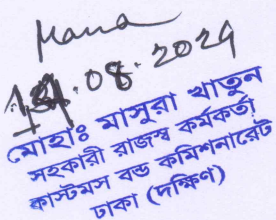 .08.2024
মোহাঃ মাসুরা খাতুন
সহকারী রাজস্ব কর্মকর্তা
কাস্টমস বন্ড কমিশনারেট
ঢাকা (দক্ষিণ)